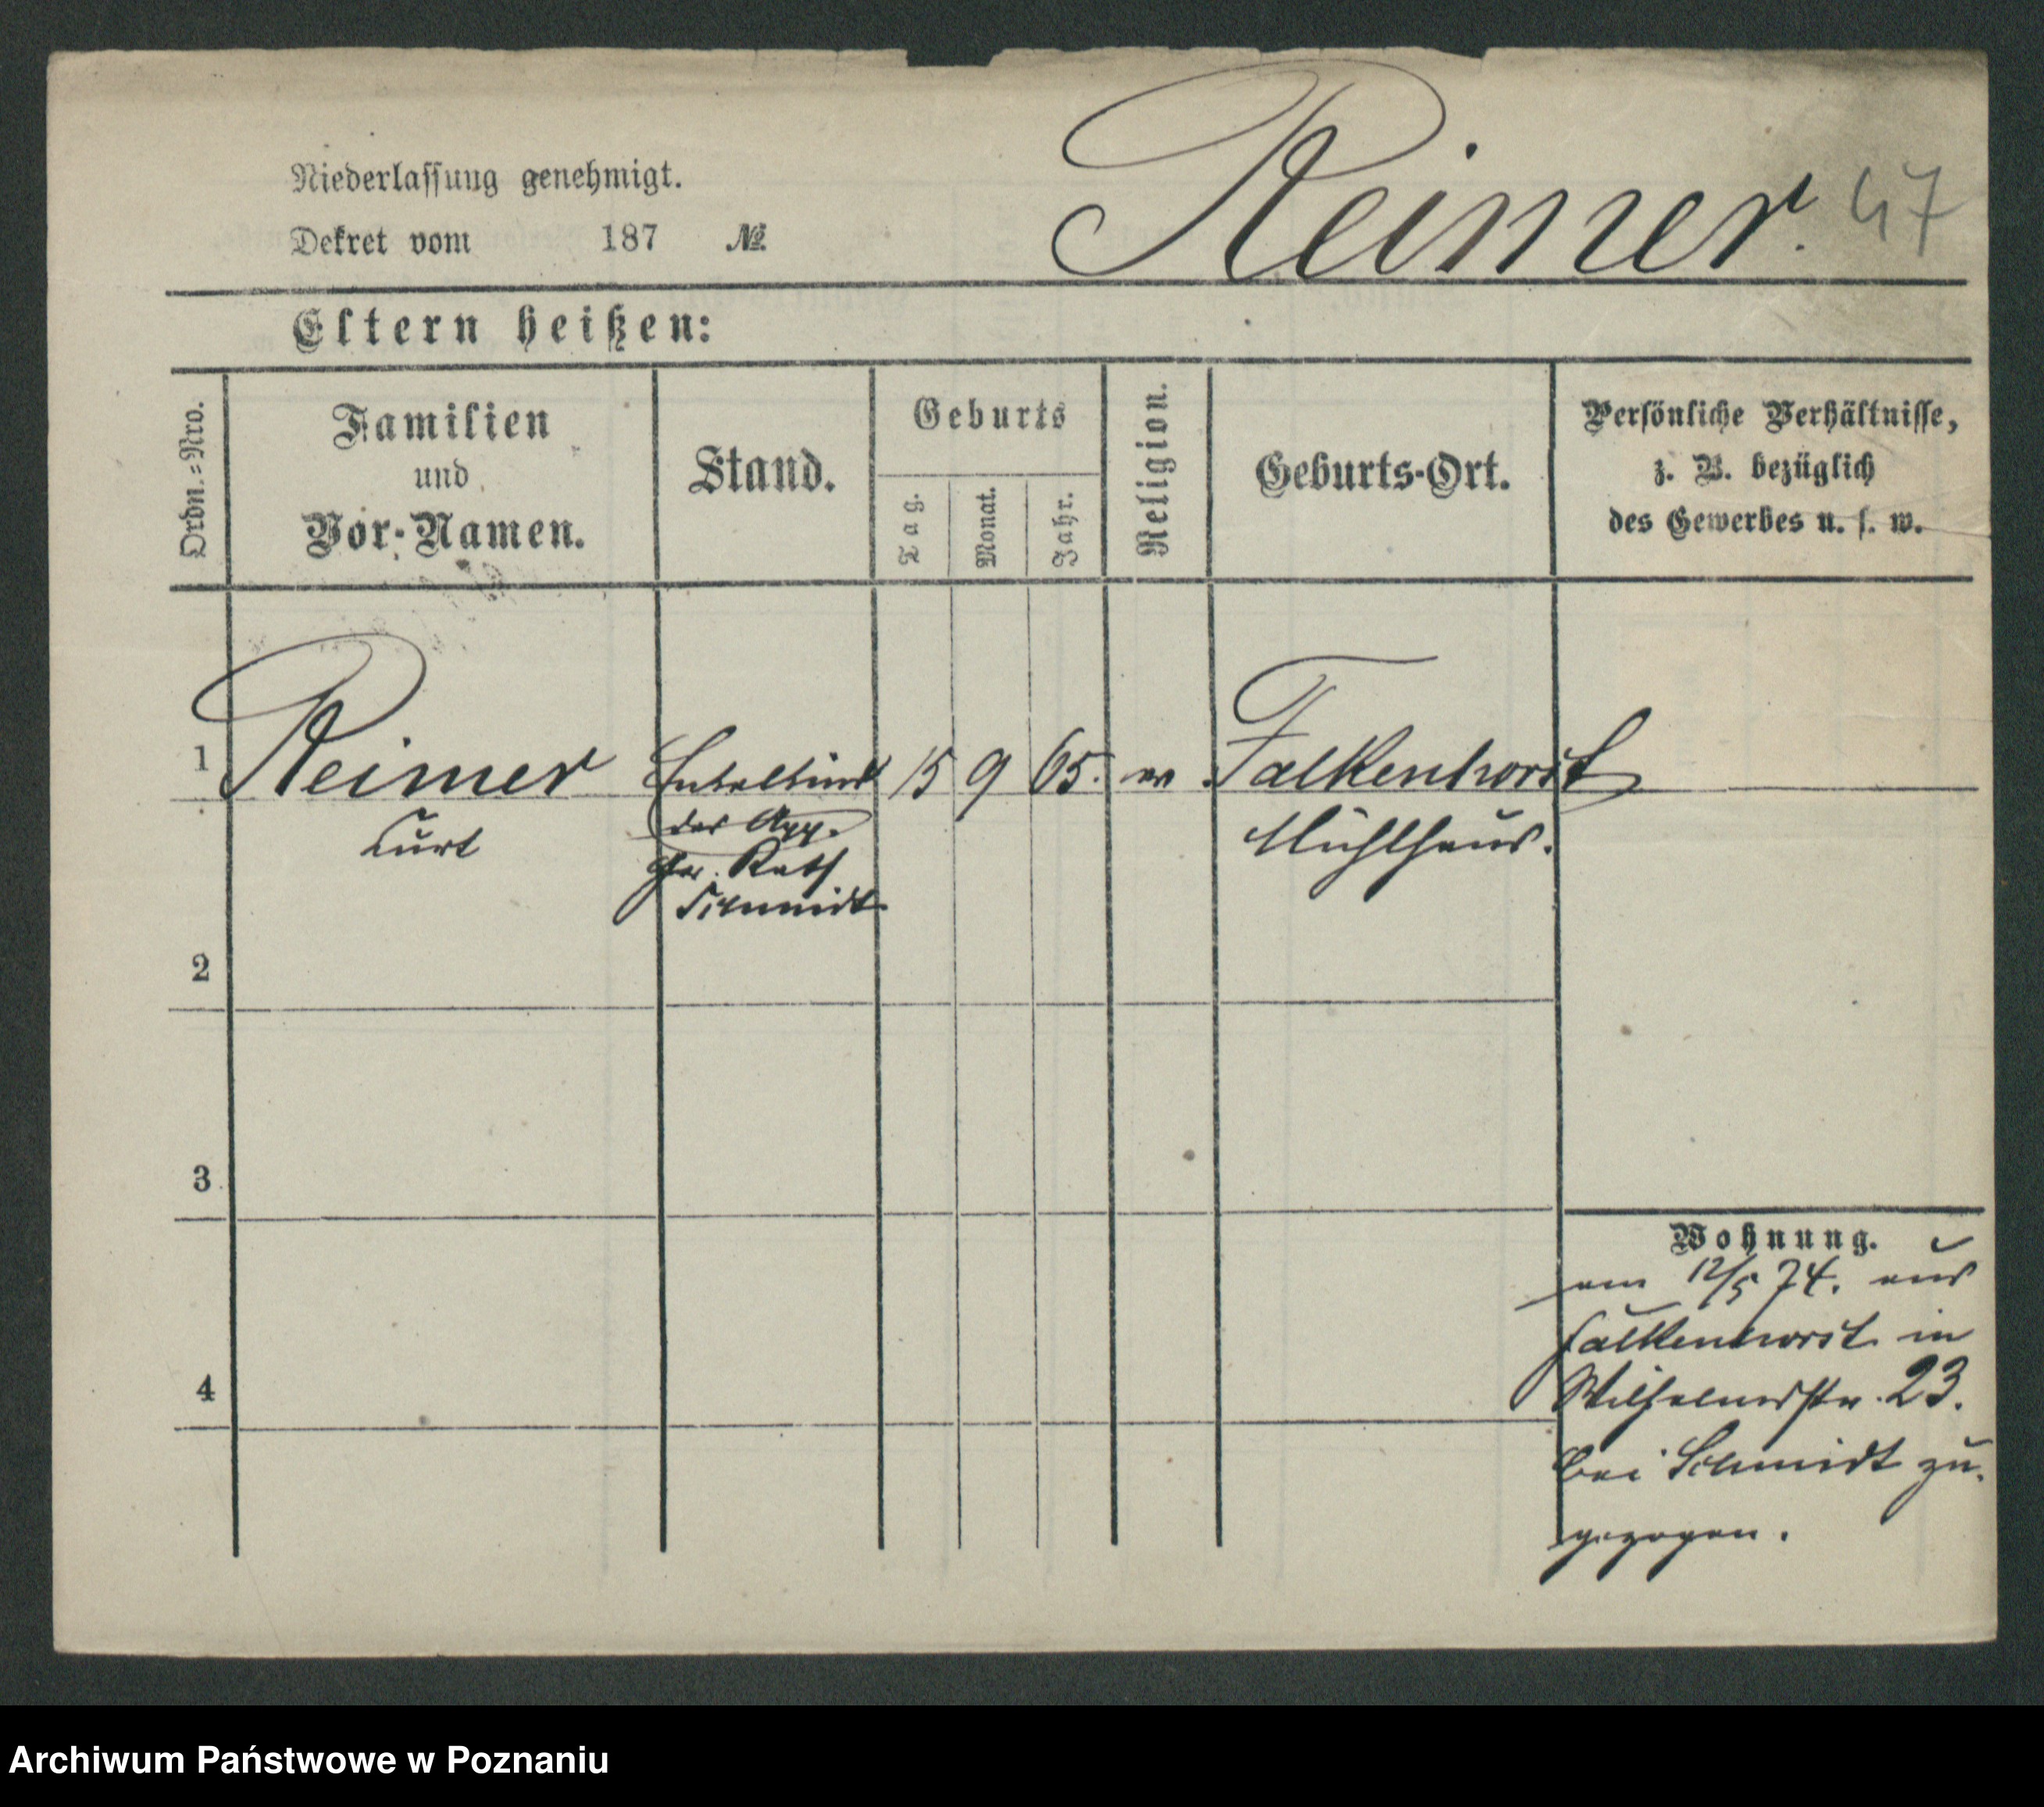 Niederlassung genehmigt.
Dekret vom 187 №
Reimer. 47
Eltern heißen:
Ordn.=Nro.
Familien
und
Vor-Namen.
Stand.
Geburts
Tag.
Monat.
Jahr.
Religion.
Geburts-Ort.
Persönliche Verhältnisse,
z. B. bezüglich
des Gewerbes u. s. w.
1 Reimer Enkelkind 15 9 65. ev Falkenhorst
Curt des App. Mühlhaus.
Ger. Rath
Schmidt
2
3
4
Wohnung.
am 12/5 74. aus
Falkenhorst in
Wilhelmsstr. 23.
bei Schmidt zu-
gezogen.
Archiwum Państwowe w Poznaniu